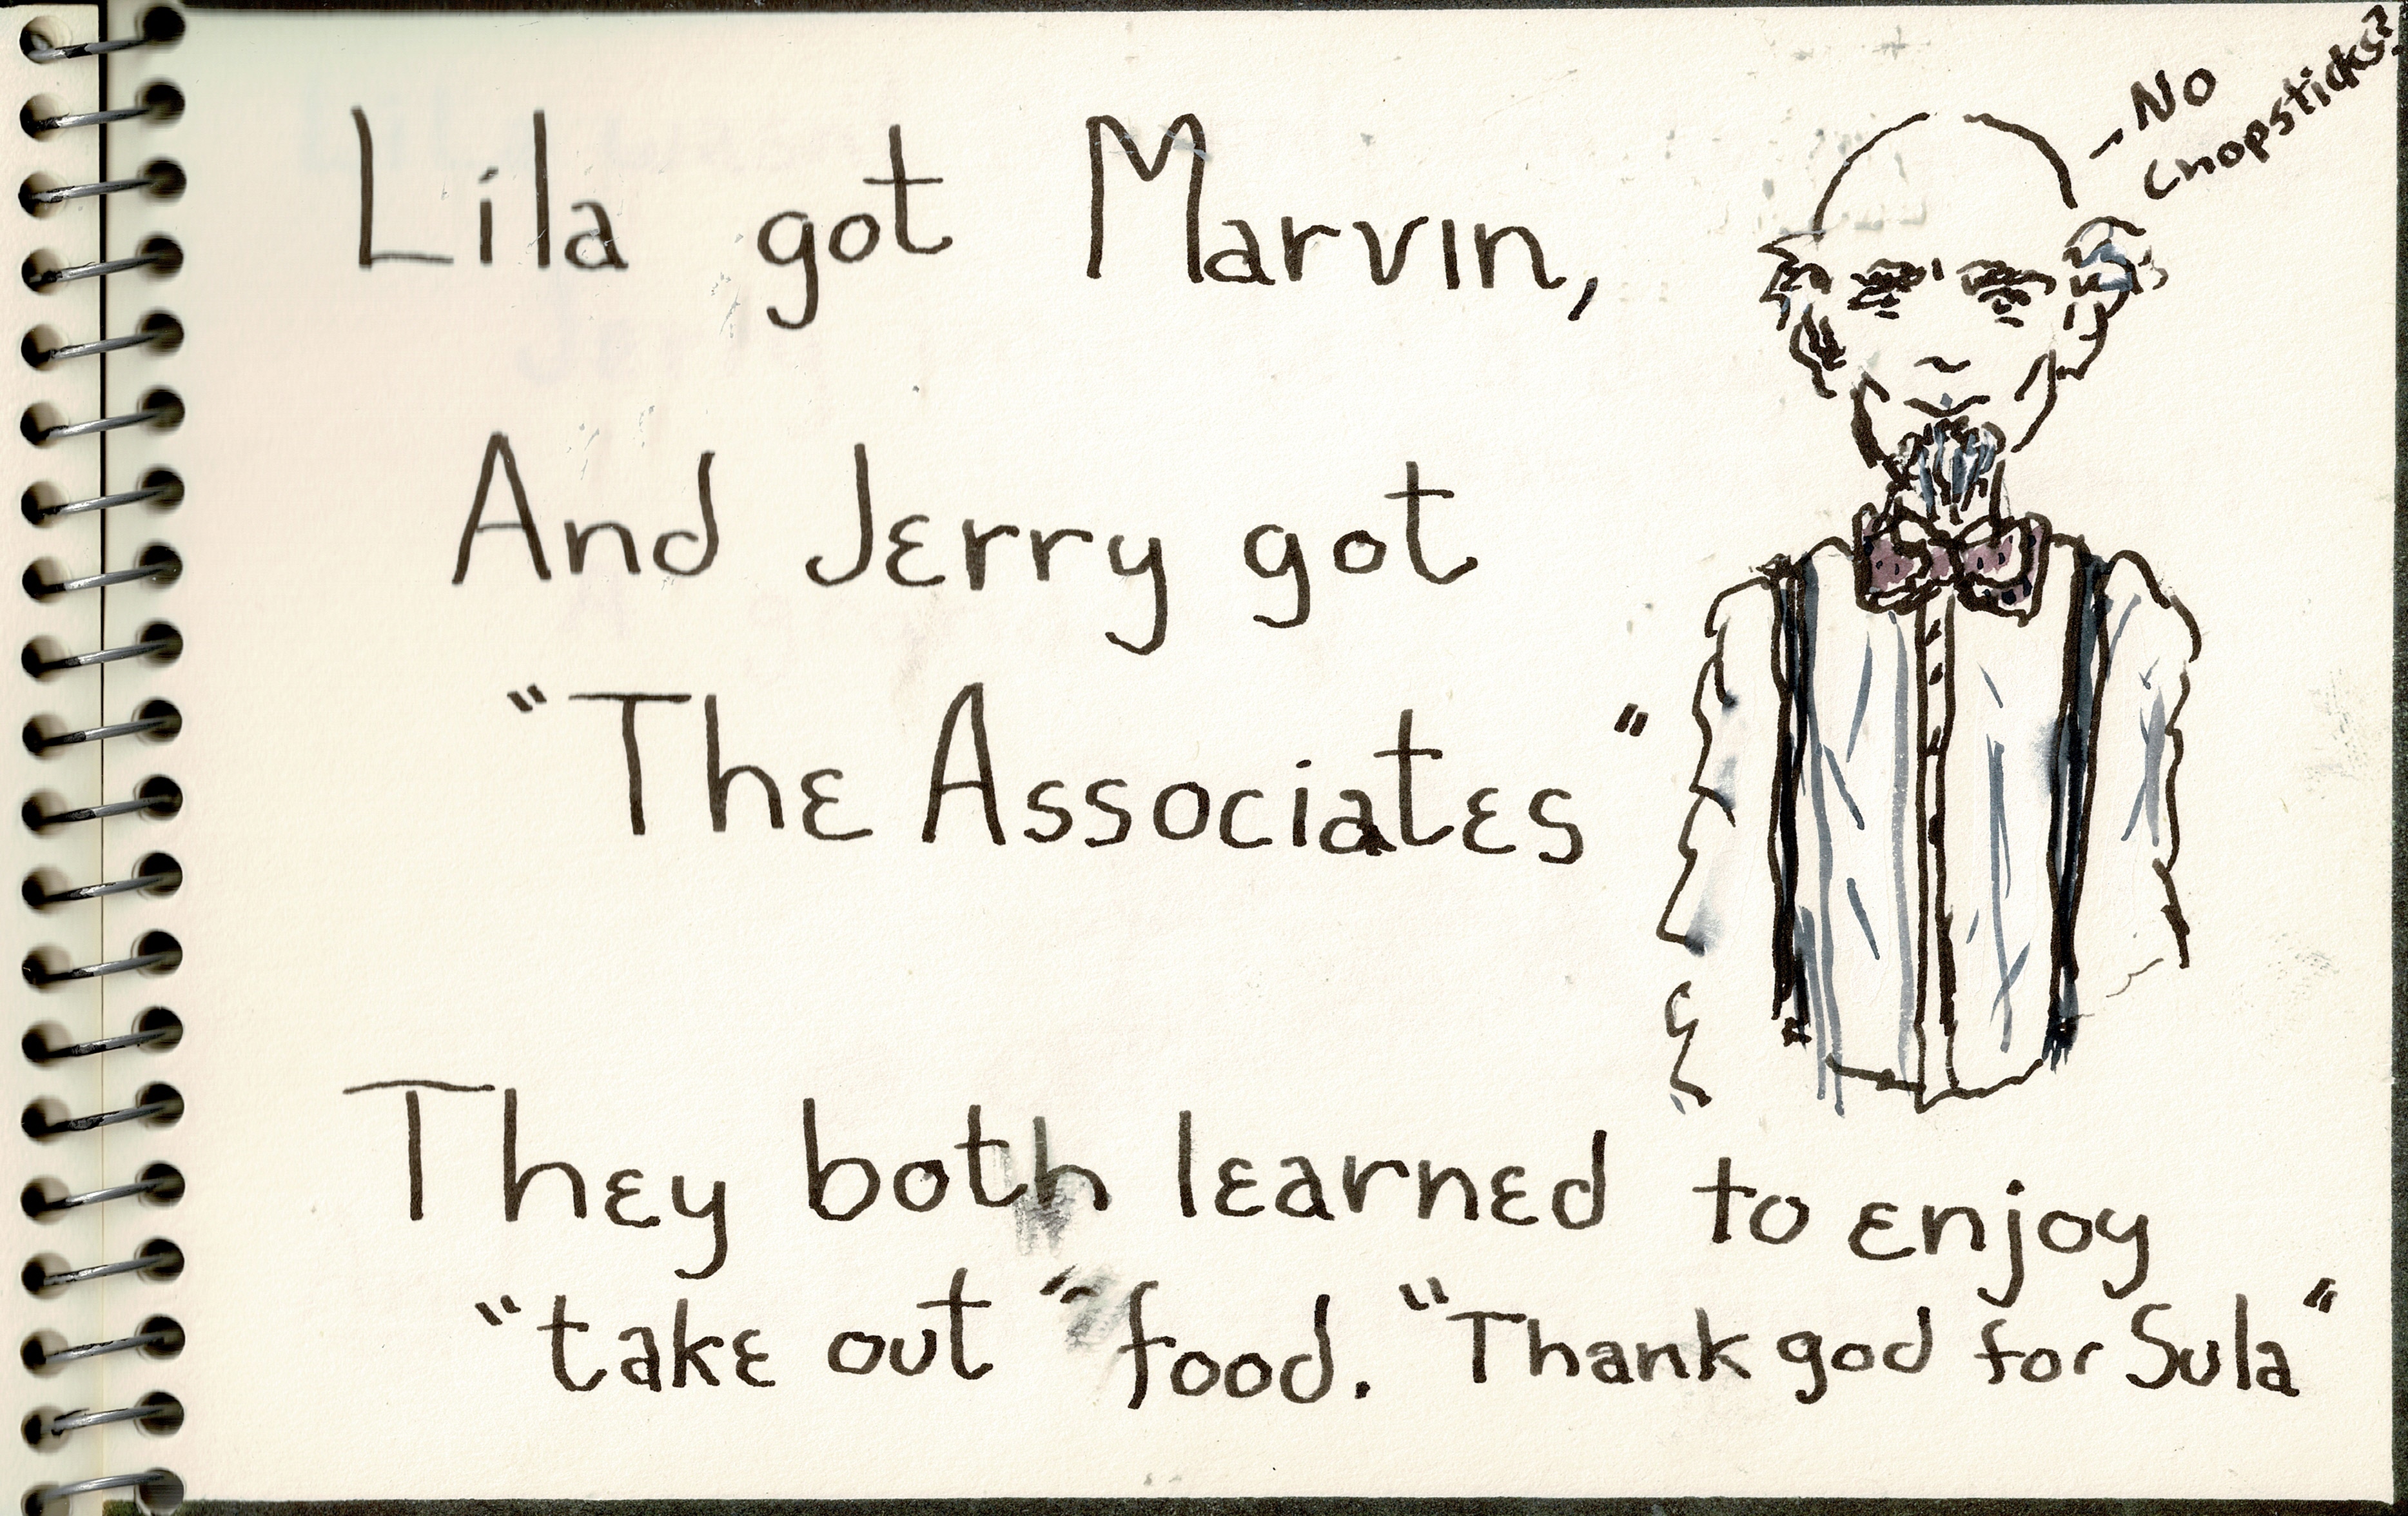 - No
Chopsticks?
Lila got Marvin,
And Jerry got
"The Associates"
They both learned to enjoy
"take out" food. "Thank god for Sula"